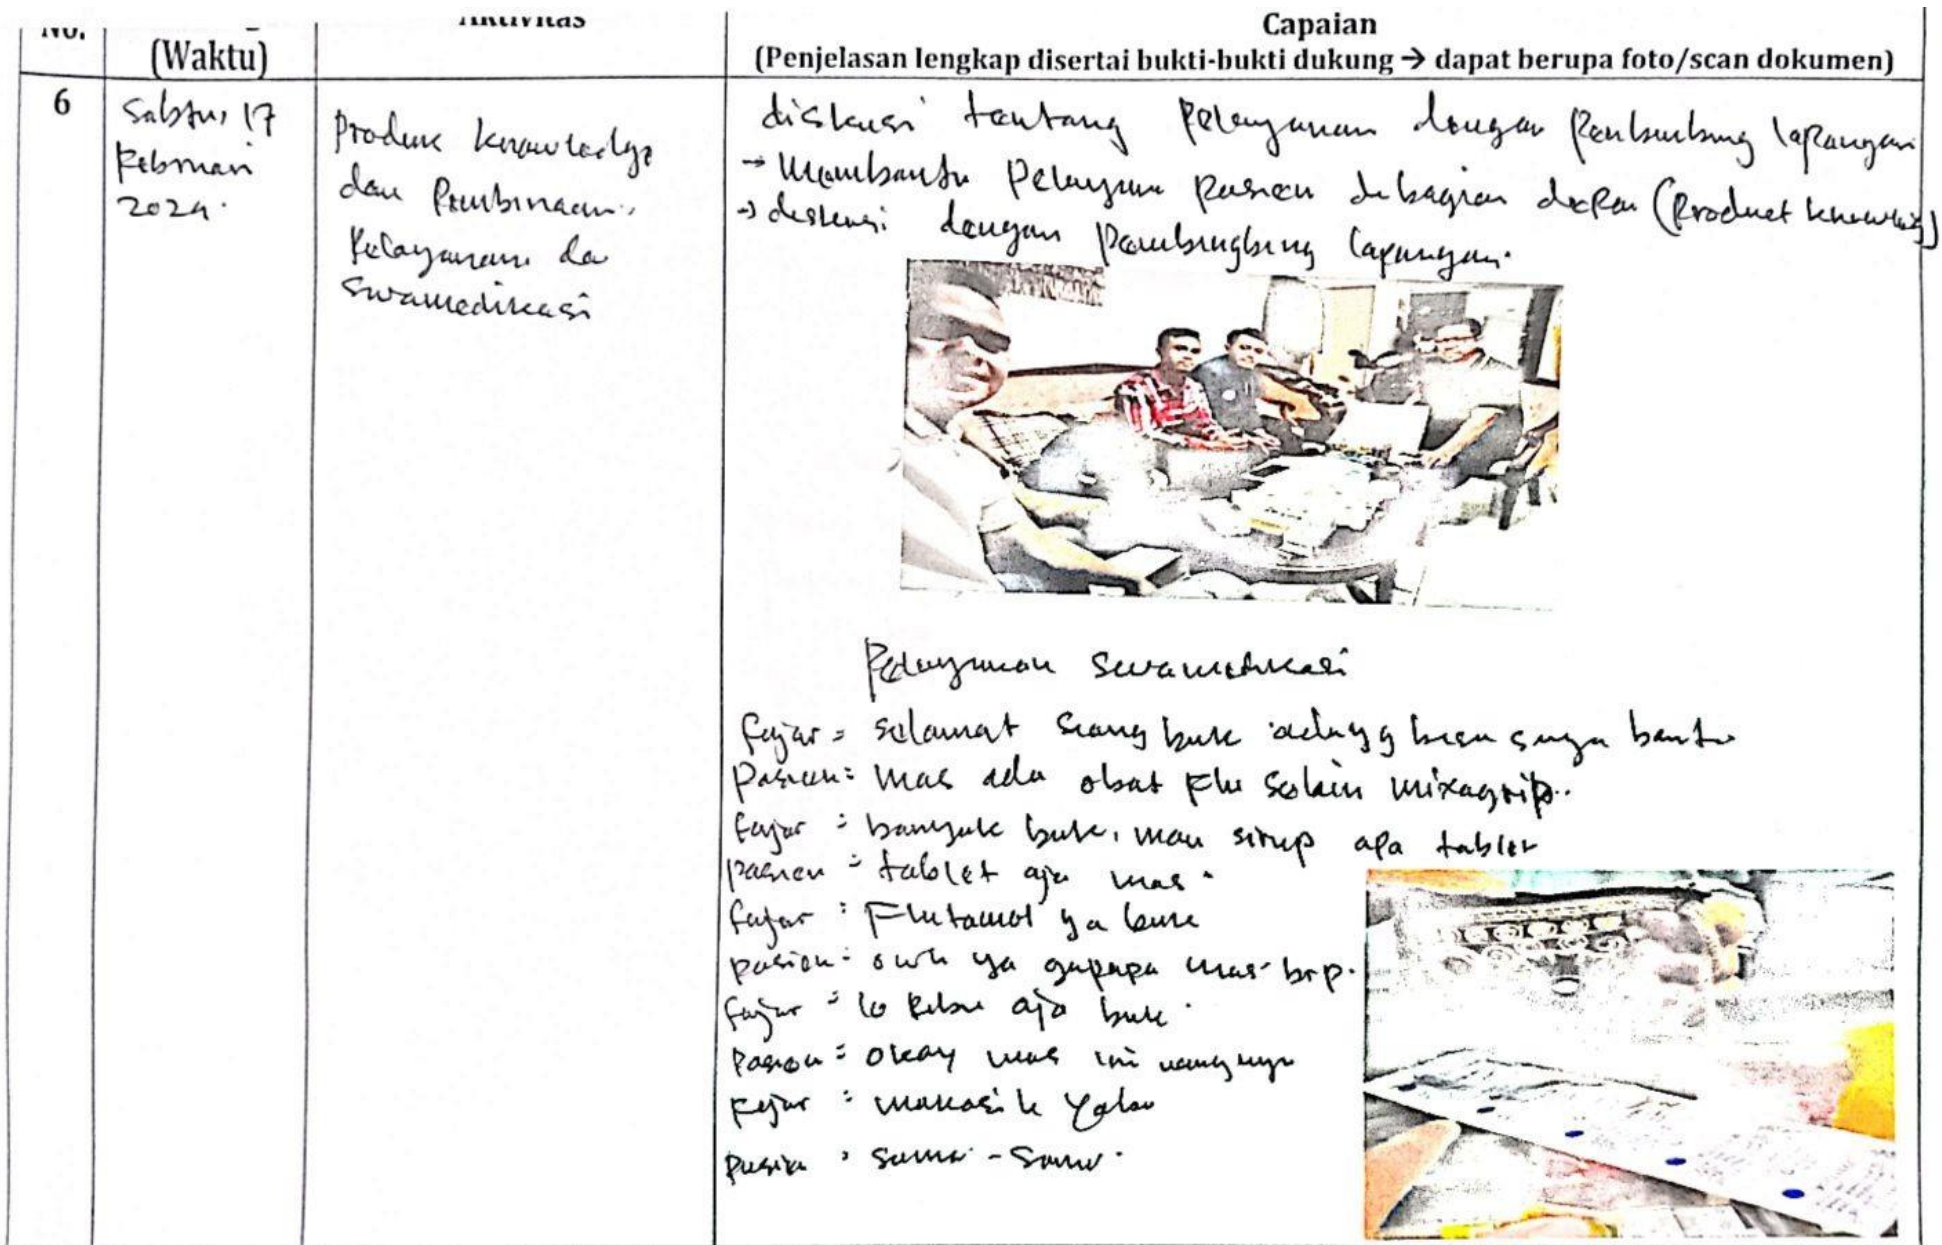 No. Aktivitas Capaian
(Waktu) (Penjelasan lengkap disertai bukti-bukti dukung → dapat berupa foto/scan dokumen)
6
Sabtu, 17
Februari
2024.
Produk knowledge
dan Pembinaan
Pelayanan da
Swamedikasi
diskusi tentang Pelayanan dengan Pembimbing lapangan
→ Membantu Pelayanan pasien dibagian depan (Product
→ diskusi dengan pembingbing lapangan.
Pelayanan Swamedikasi
fajar = selamat siang buk bisa saya bantu
Pasien = mas ada obat Flu selain mixagrip..
fajar = banyak buk, mau sirup apa tablet
pasien = tablet aja mas.
fajar : Flutamol ya buk
pasien = owh ya gapapa mas brp.
fajar = 10 Ribu aja buk.
Pasien = okay mas ini uangnya
Fajar : makasih
Pasien , Sama - Sama.